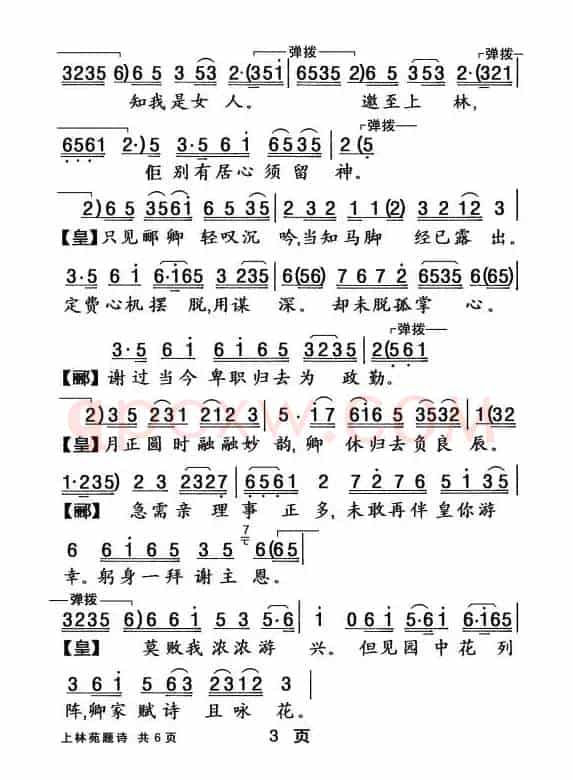 弹拨 弹拨
3235 6) 6 5 3 53 2·(351 | 6535 2) 6 5 353 2·(321
知我是女人。 邀至上林,
弹拨
6561 2·) 5 3·5 6 1 6535 | 2 (5
佢别有居心须留神。
2) 6 5 3561 6 5 35 | 2 3 2 1 1 (2) 3 2 12 3
【皇】只见郦卿轻叹沉吟,当知马脚经已露出。
3·5 6 1 6·165 3235 | 6 (56) 7 6 7 2 6535 6 (65)
定费心机摆脱,用谋深。却未脱孤掌心。
弹拨
3·5 6 1 6 1 6 5 3235 | 2 (561
【郦】谢过当今卑职归去为政勤。
2) 3 5 231 212 3 | 5·17 6165 3532 | 1 (32
【皇】月正圆时融融妙韵,卿休归去负良辰。
1·235) 2 3 2327 | 6561 2 7 2 7 6 5135
【郦】急需亲理事正多,未敢再伴皇你游
6 6 1 6 5 3 5 7 6 (65
幸。躬身一拜谢主恩。
弹拨
3235 6) 6 6 1 5 3 5·6 | 1 0 6 1 5·61 6·165
【皇】莫败我浓浓游兴。但见园中花列
3 6 1 5 63 2312 3 |
阵,卿家赋诗且咏花。
上林苑题诗 共6页 3 页